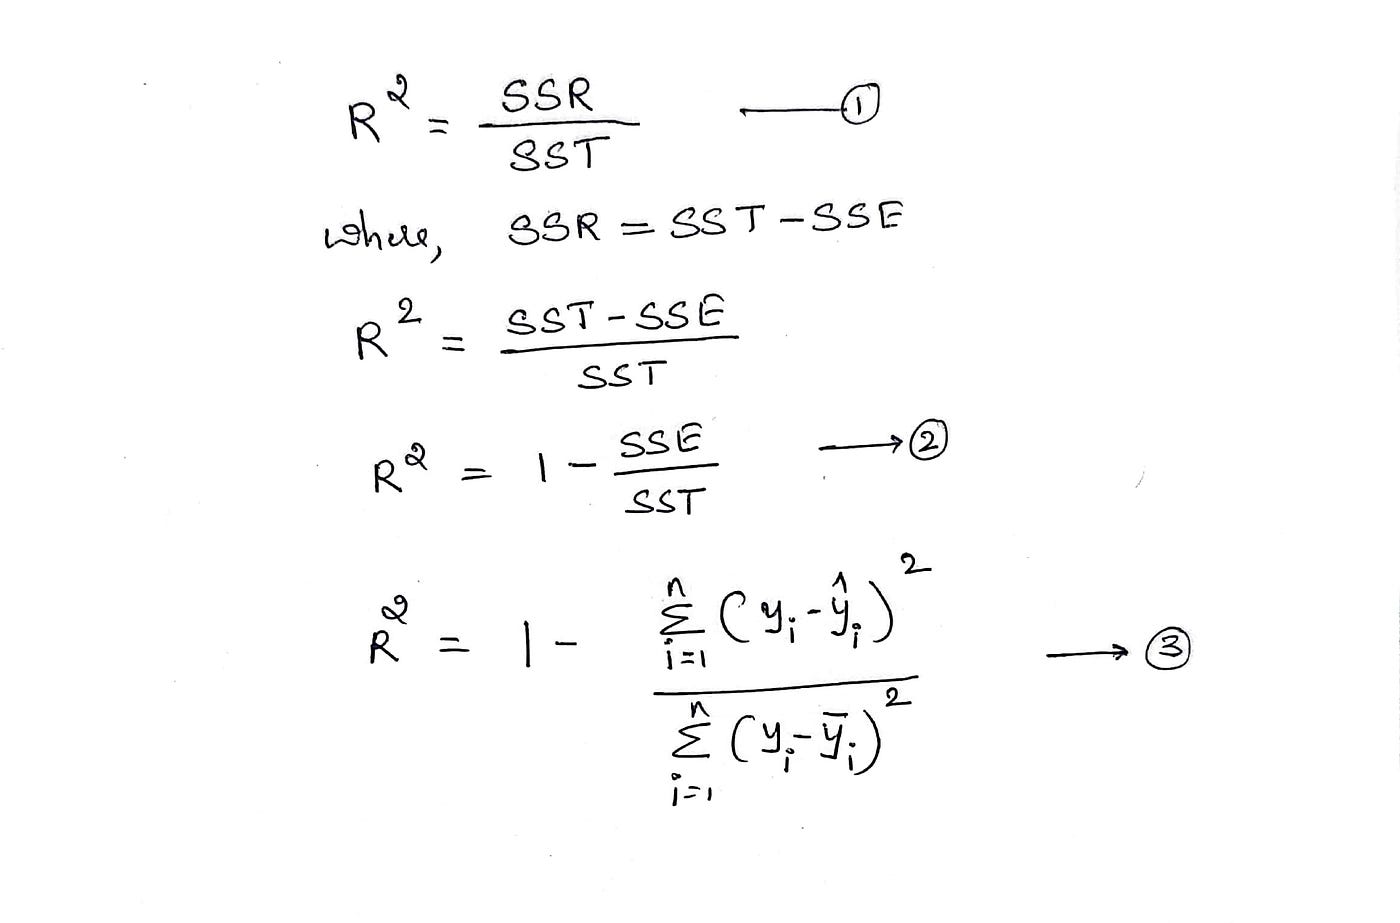 R² = SSR / SST —— ①
where, SSR = SST - SSE
R² = SST - SSE / SST
R² = 1 - SSE / SST → ②
R² = 1 - Σᵢ₌₁ⁿ (yᵢ - ŷᵢ)² / Σᵢ₌₁ⁿ (yᵢ - ȳᵢ)² → ③